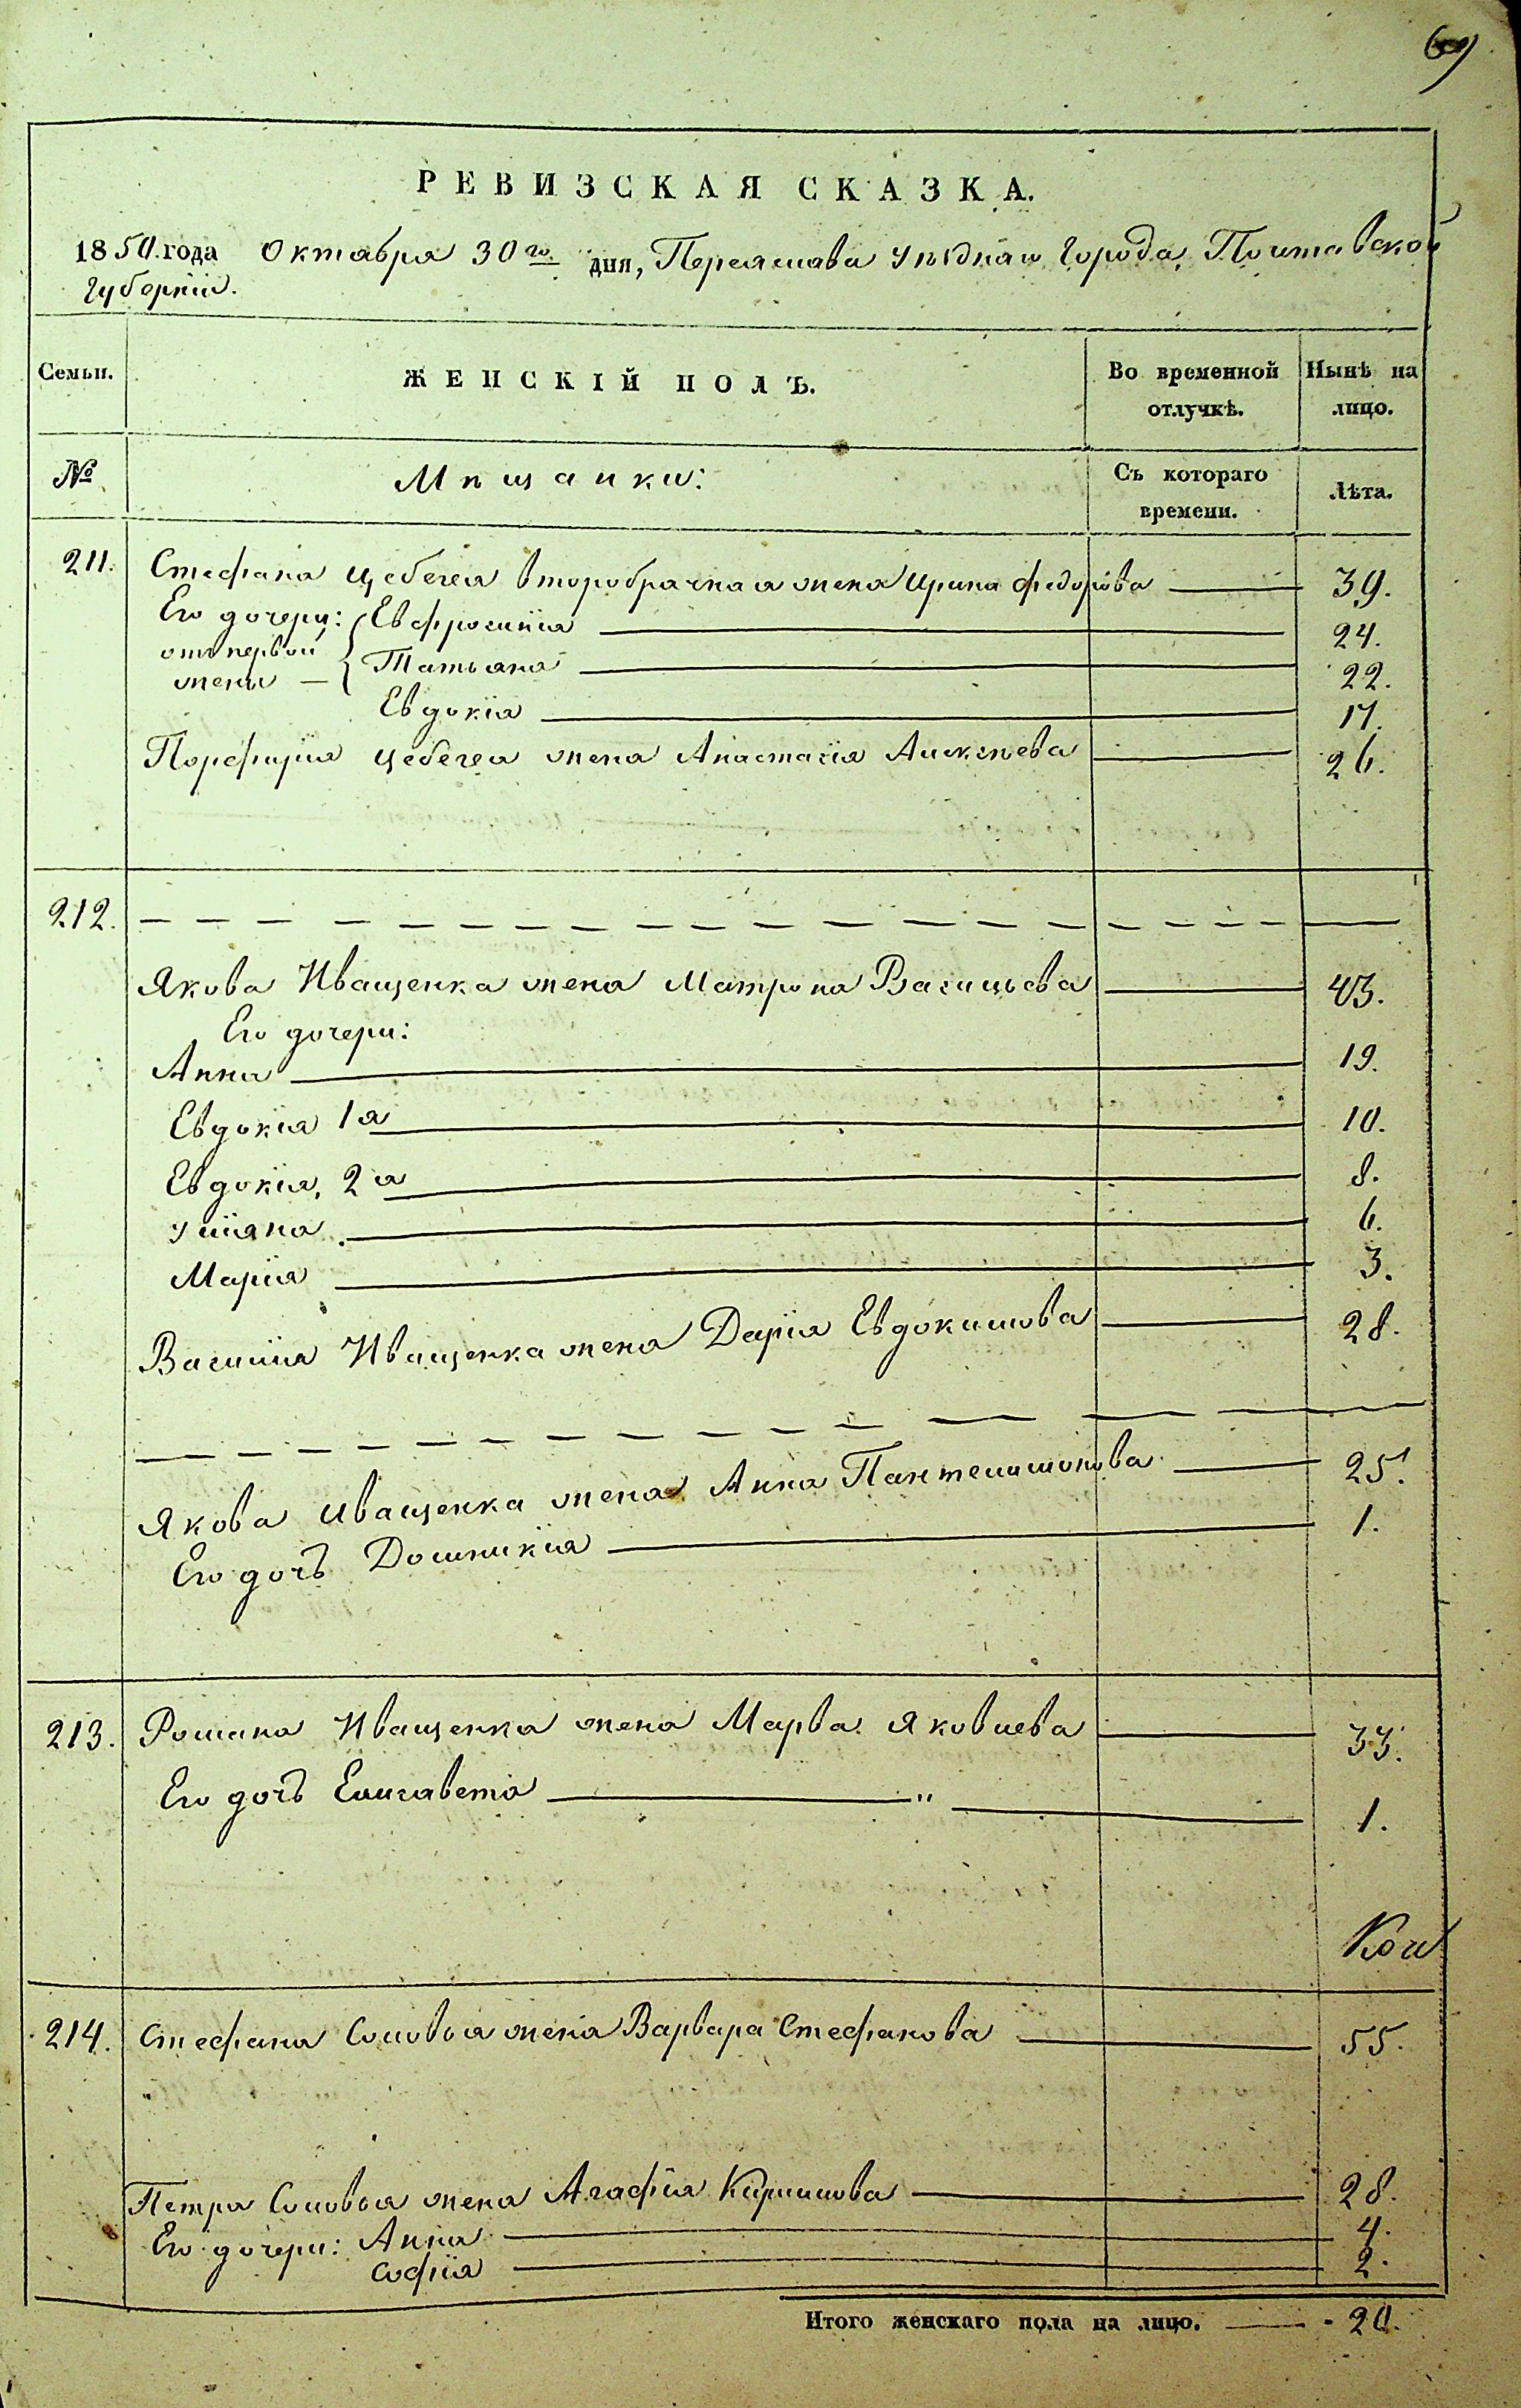 69
РЕВИЗСКАЯ СКАЗКА.
1850. года Октября 30го. дня, Переяслава уѣзднаго Города, Полтавской
Губерніи.
Семьи. ЖЕНСКІЙ ПОЛЪ. Во временной отлучкѣ. Нынѣ на лицо.
№ Мѣщанки: Съ котораго времени. Лѣта.
211. Стефана Цебегея второбрачная жена Ирина Федорова 39.
Его дочери: Евфросинія 24.
отъ первой
жены Татьяна 22.
Евдокія 17.
Порфирія Цебегея жена Анастасія Алексѣева 26.
212.
Якова Иващенка жена Матрона Васильева 43.
Его дочери:
Анна 19.
Евдокія 1я 10.
Евдокія, 2я 8.
Уліяна 6.
Марія 3.
Василія Иващенка жена Дарія Евдокимова 28.
Якова Иващенка жена Анна Пантелимонова 25.
Его дочь Домникія 1.
213. Романа Иващенка жена Марѳа Яковлева 33.
Его дочь Елисавета " 1.
214. Стефана Соловья жена Варвара Стефанова 55.
Петра Соловья жена Агафія Кирилова 28.
Его дочери: Анна 4.
Софія 2.
Итого женскаго пола на лицо. 20.